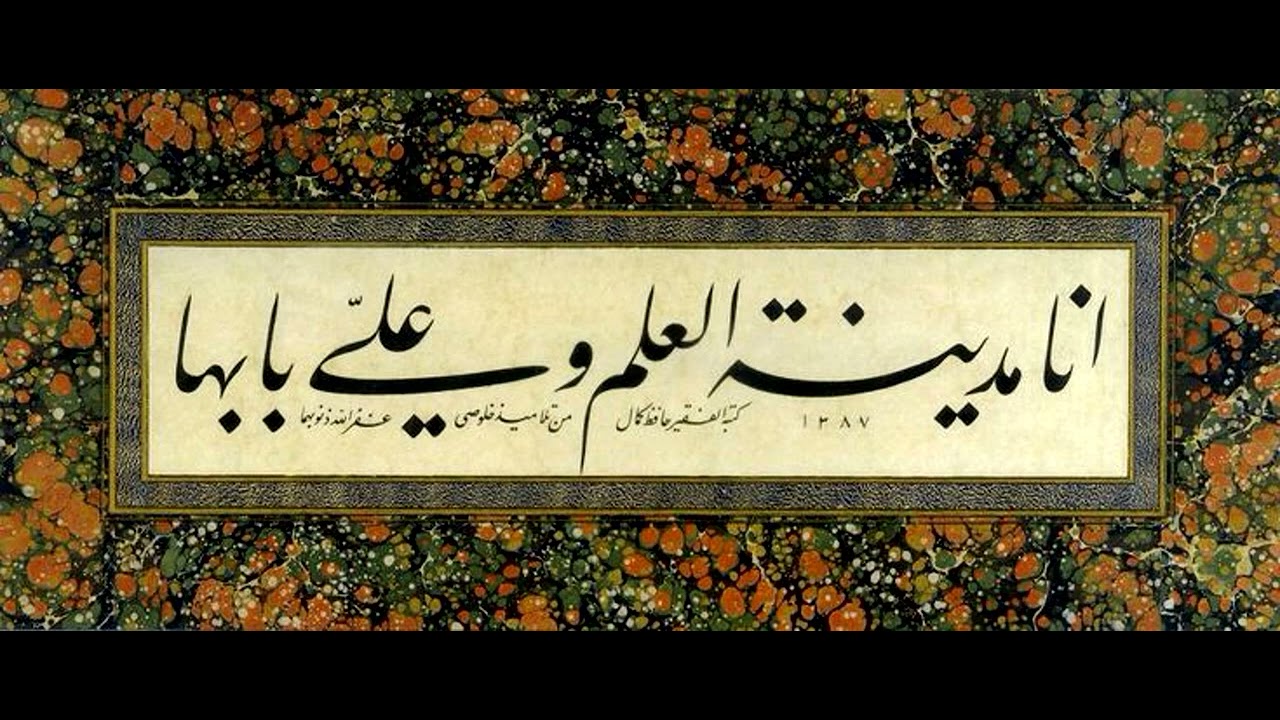 انا مدينة العلم وعليّ بابها
١٣٨٧ كتبه الفقير حافظ كمال من تلاميذ خلوصى غفر الله ذنوبهما